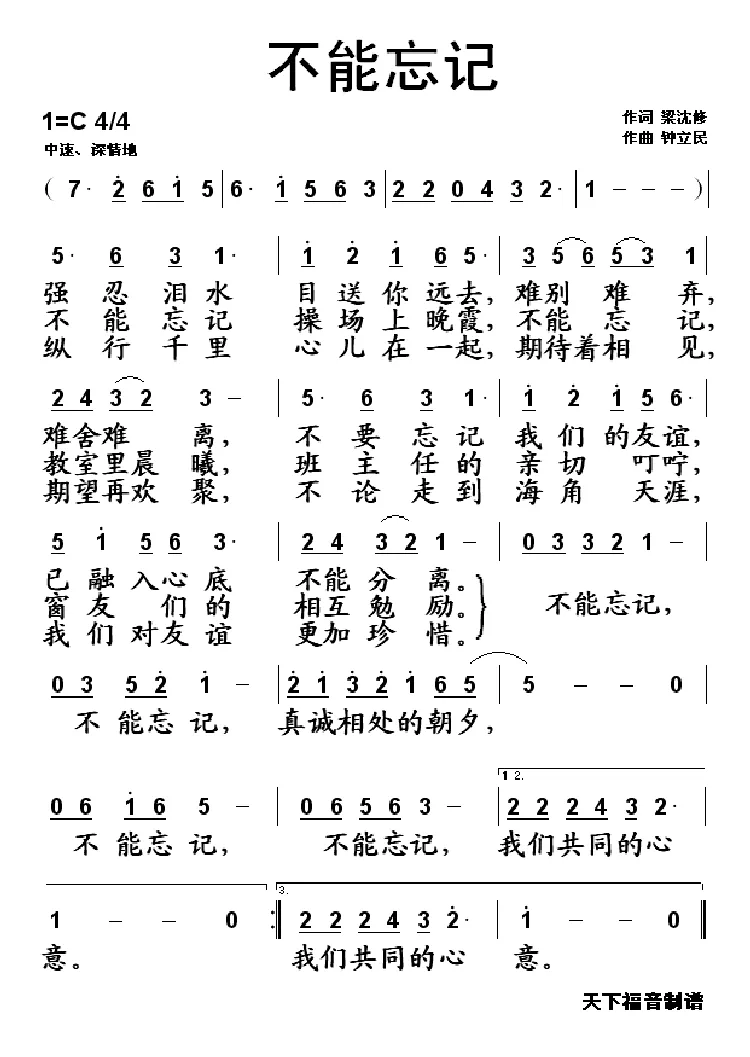 不能忘记
1=C 4/4
作词 梁沈修
中速、深情地
作曲 钟立民
( 7· 2 6 1 5 | 6· 1 5 6 3 | 2 2 0 4 3 2· | 1 - - - ) |
5· 6 3 1· | 1 2 1 6 5· | 3 5 6 5 3 1 |
强忍泪水 目送你远去,难别难弃,
不能忘记 操场上晚霞,不能忘记,
纵行千里 心儿在一起,期待着相见,
2 4 3 2 3 - | 5· 6 3 1· | 1 2 1 5 6· |
难舍难离, 不要忘记 我们的友谊,
教室里晨曦, 班主任的亲切叮咛,
期望再欢聚, 不论走到海角天涯,
5 1 5 6 3· | 2 4 3 2 1 - | 0 3 3 2 1 - |
已融入心底 不能分离。
窗友们的 相互勉励。 不能忘记,
我们对友谊 更加珍惜。
0 3 5 2 1 - | 2 1 3 2 1 6 5 | 5 - - 0 |
不能忘记, 真诚相处的朝夕,
1 2.
0 6 1 6 5 - | 0 6 5 6 3 - | 2 2 2 4 3 2· |
不能忘记, 不能忘记, 我们共同的心
3.
1 - - 0 :| 2 2 2 4 3 2· | 1 - - 0 ||
意。 我们共同的心 意。
天下福音制谱